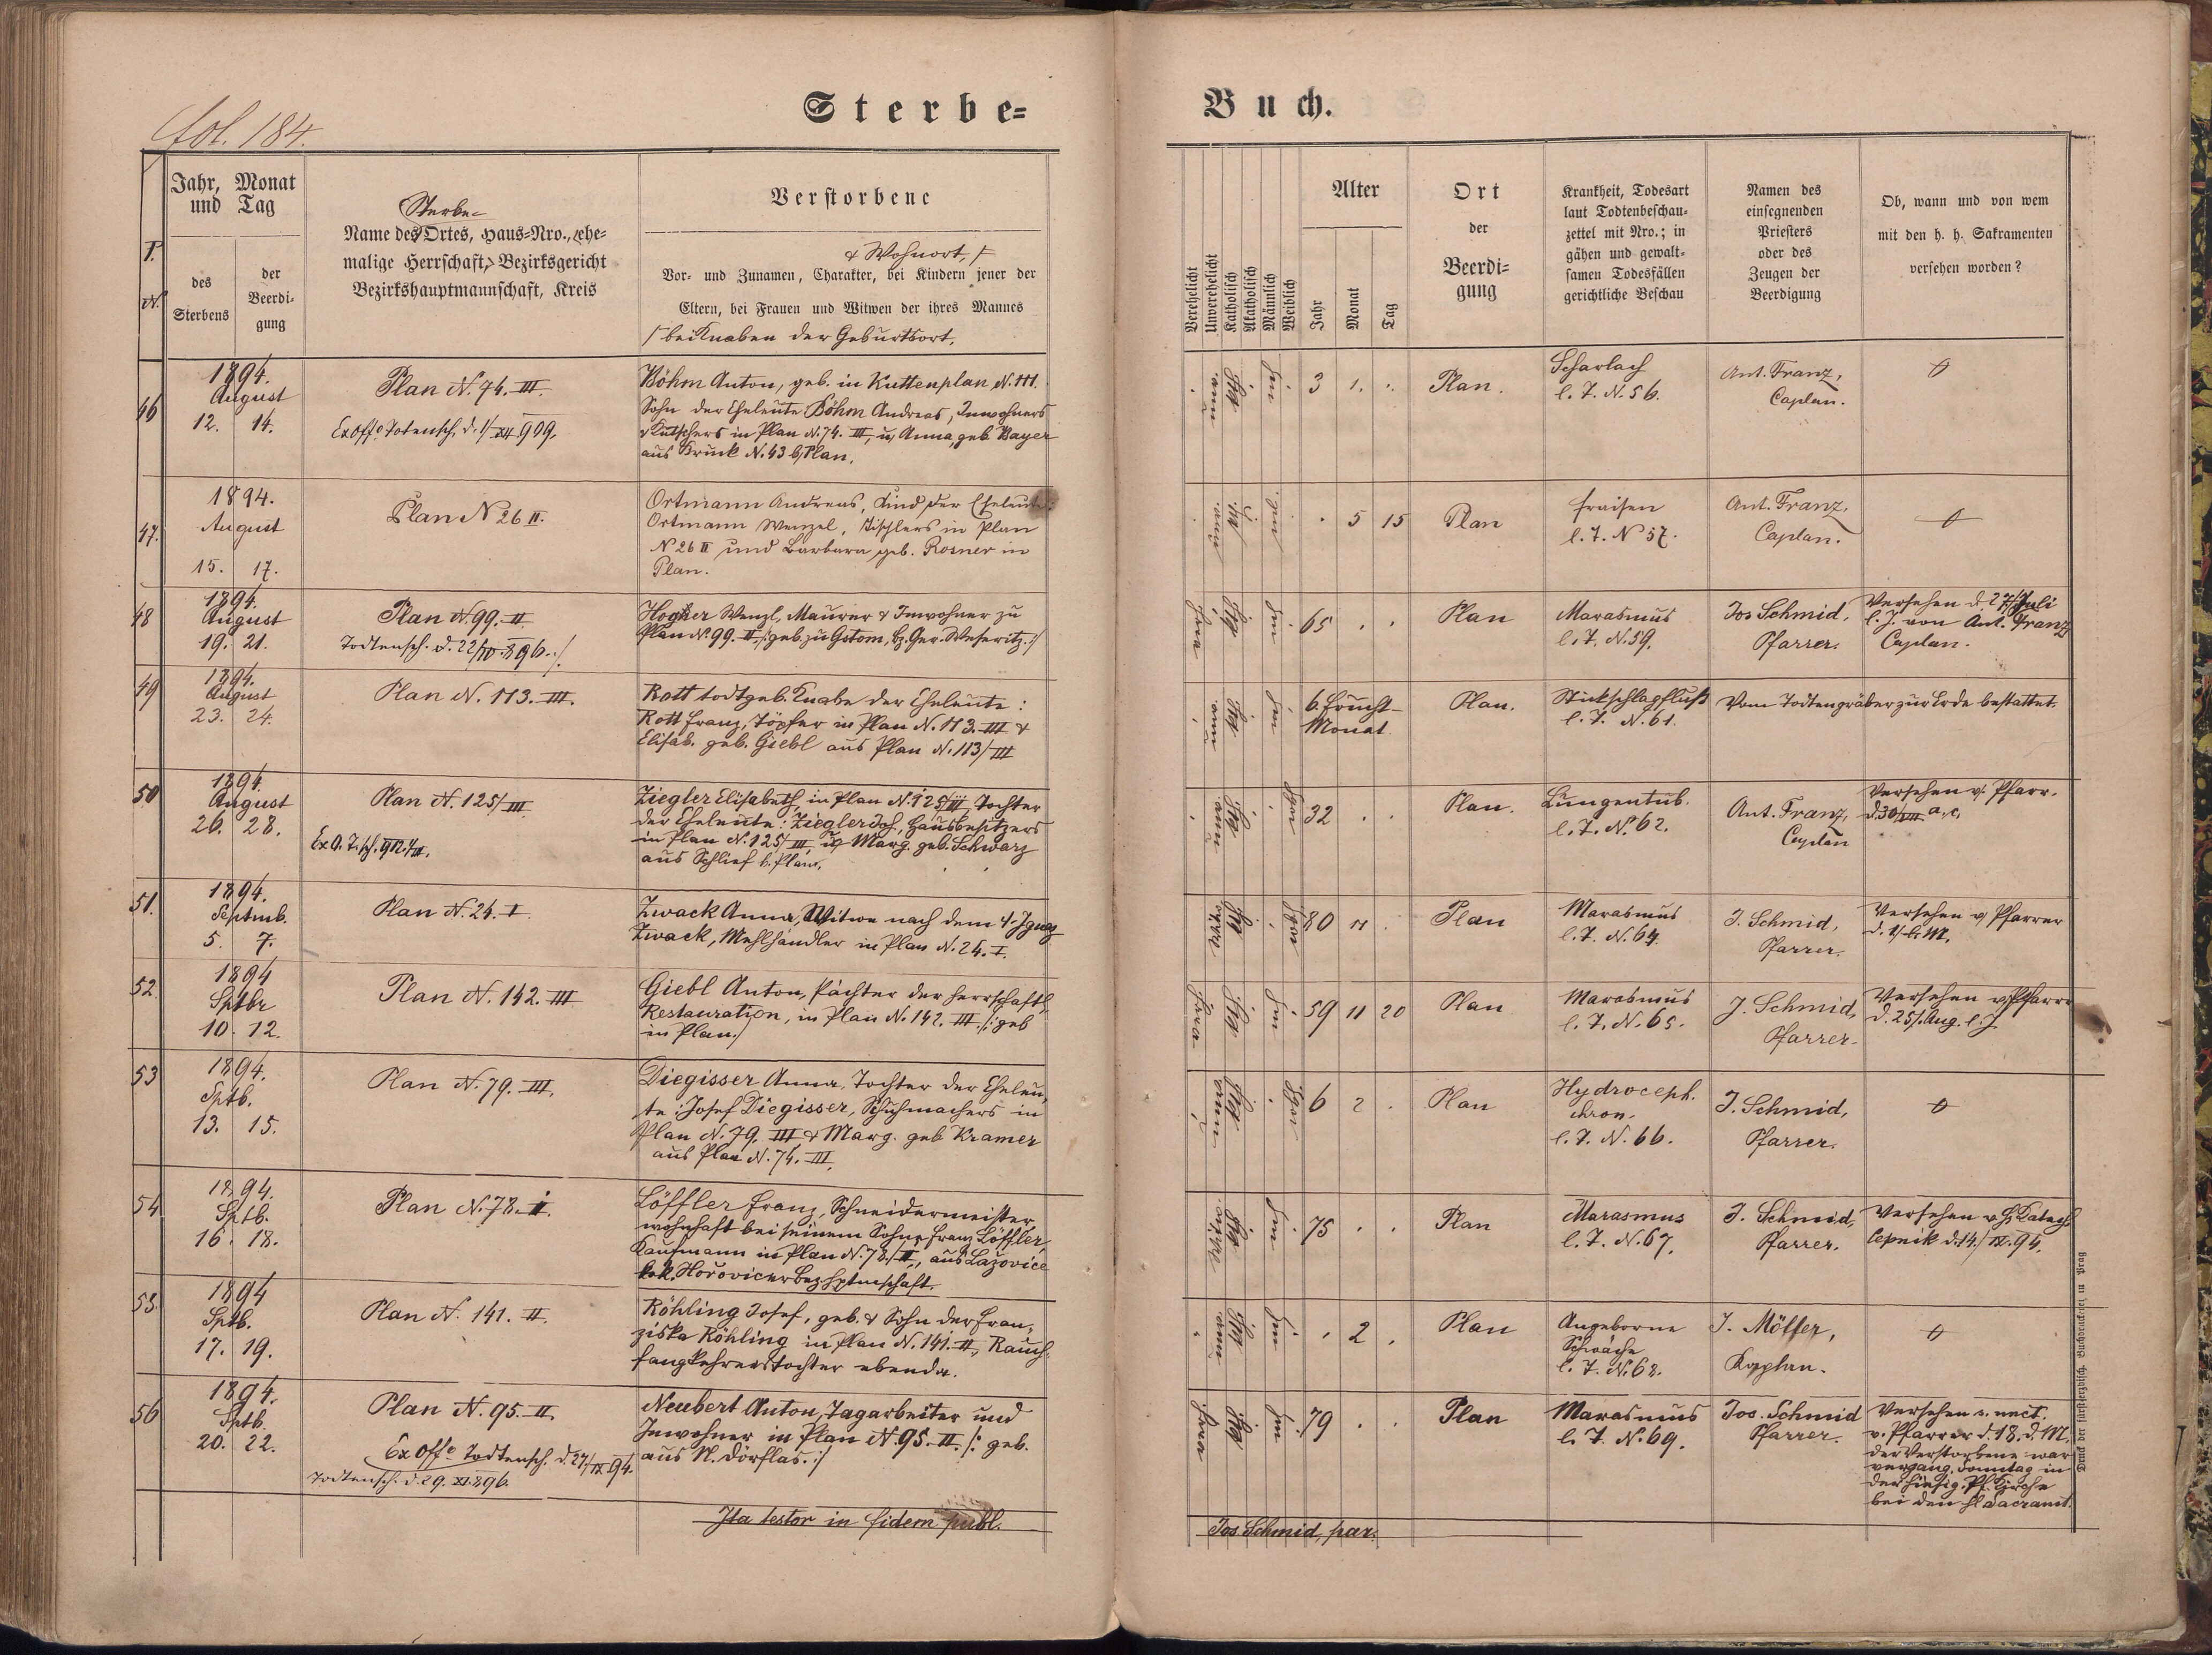 fol. 184.
Sterbe-
Buch.
P.
N.
Jahr, Monat
und Tag
des
Sterbens
der
Beerdi-
gung
Sterbe-
Name des Ortes, Haus-Nro., ehe-
malige Herrschaft, Bezirksgericht
Bezirkshauptmannschaft, Kreis
Verstorbene
& Wohnort, /
Vor- und Zunamen, Charakter, bei Kindern jener der
Eltern, bei Frauen und Witwen der ihres Mannes
/ bei Knaben der Geburtsort.
Verehelicht
Unverehelicht
Katholisch
Akatholisch
Männlich
Weiblich
Alter
Jahr
Monat
Tag
Ort
der
Beerdi-
gung
Krankheit, Todesart
laut Todtenbeschau-
zettel mit Nro.; in
gähen und gewalt-
samen Todesfällen
gerichtliche Beschau
Namen des
einsegnenden
Priesters
oder des
Zeugen der
Beerdigung
Ob, wann und von wem
mit den h. h. Sakramenten
versehen worden?
46
1894.
August
12. 14.
Plan N. 74. III.
Ex offo Totensch. d. 1/XII 909.
Böhm Anton, geb. in Kuttenplan N. 111.
Sohn der Eheleute Böhm Andreas, Inwohners
& Kutschers in Plan N. 74. III, u. Anna, geb. Bayer
aus Bruck N. 43 b/Plan.
3 1. .
Plan.
Scharlach
l. Z. N. 56.
Ant. Franz,
Caplan.
47.
1894.
August
15. 17.
Plan N 26 II.
Ortmann Andreas, Kind der Eheleute:
Ortmann Wenzel, Tischlers in Plan
N 26 II und Barbara geb. Rosner in
Plan.
. 5 15
Plan
Fraisen
l. Z. N 57.
Ant. Franz,
Caplan.
48
1894.
August
19. 21.
Plan N. 99. II
Todtensch. d. 22/IV. 896. :/
Hogher Wenzl, Maurer & Inwohner zu
Plan N. 99. II /: geb. zu Gstom, Bz. Ger. Weseritz :/
65 . .
Plan
Marasmus
l. Z. N. 59.
Jos Schmid,
Pfarrer.
Versehen d. 27/Juli
l. J. von Ant. Franz
Caplan.
49
1894.
August
23. 24.
Plan N. 113. III.
Rott todtgeb. Knabe der Eheleute:
Rott Franz, Töpfer in Plan N. 113. III &
Elisab. geb. Giebl aus Plan N. 113/III
6. Frucht-
Monat.
Plan.
Stickschlagfluß
l. Z. N. 61.
Vom Todtengräber zur Erde bestattet.
50
1894.
August
26. 28.
Plan N. 125/III
Ziegler Elisabeth, in Plan N. 125/III, Tochter
der Eheleute: Ziegler Joh., Hausbesitzers
in Plan N. 125/III, u. Marg. geb. Schwarz
aus Schlief b. Plan.
32 . .
Plan.
Lungentub.
l. Z. N. 62.
Ant. Franz,
Caplan
Versehen v. Pfarr.
51.
1894.
Septmb.
5. 7.
Plan N. 24. I
Zwack Anna, Witwe nach dem + Ignaz
Zwack, Mehlhändler in Plan N. 24. I.
80 11 .
Plan
Marasmus
l. Z. N. 64.
J. Schmid,
Pfarrer.
Versehen v. Pfarrer
d. 1/l. M.
52.
1894
Septbr
10. 12.
Plan N. 142. III
Giebl Anton, Pächter der herrschaftl.
Restauration, in Plan N. 142. III. /: geb
in Plan :/
59 11 20
Plan
Marasmus
l. Z. N. 65.
J. Schmid,
Pfarrer.
Versehen v. Pfarrer
d. 25/. Aug. l. J.
53
1894.
Sptb.
13. 15.
Plan N. 79. III.
Diegisser Anna, Tochter der Eheleu-
te: Josef Diegisser, Schuhmachers in
Plan N. 79. III & Marg. geb Kramer
aus Plan N. 74. III.
6 2 .
Plan
Hydroceph.
chron.
l. Z. N. 66.
J. Schmid,
Pfarrer.
54
1894.
Sptb.
16. 18.
Plan N. 78. II.
Löffler Franz, Schneidermeister,
wohnhaft bei seinem Sohne Franz Löffler,
Kaufmann in Plan N. 78/II, aus Lažovice
Hořovicer Bezhptmschaft.
75 . .
Plan
Marasmus
l. Z. N. 67.
J. Schmid,
Pfarrer.
Versehen v. H. Katech.
Cepnik d. 14./IX. 94.
55.
1894
Sptb.
17. 19.
Plan N. 141. II.
Röhling Josef, geb. & Sohn der Fran-
ziska Röhling in Plan N. 141. II, Rauch-
fangkehrerstochter ebenda.
. 2 .
Plan
Angeborne
Schwäche
l. Z. N. 68.
J. Mölfer,
Kaplan.
56
1894.
Sptb.
20. 22.
Plan N. 95. II.
Ex offo Todtensch. d. 27/IX 94.
Todtensch. d. 29. XI. 896.
Neubert Anton, Tagarbeiter und
Inwohner in Plan N. 95. II. /: geb.
aus N. Dörflas. :/
79 . .
Plan
Marasmus
l. Z. N. 69.
Jos. Schmid
Pfarrer.
Versehen
v. Pfarrer d. 18. d. M.
der Verstorbene war
vergang. Sonntag in
der hiesig. Pf. Kirche
bei den hl Sacrament.
Ita testor in fidem publ.
Jos. Schmid, par.
Druck der fürsterzbisch. Buchdruckerei in Prag